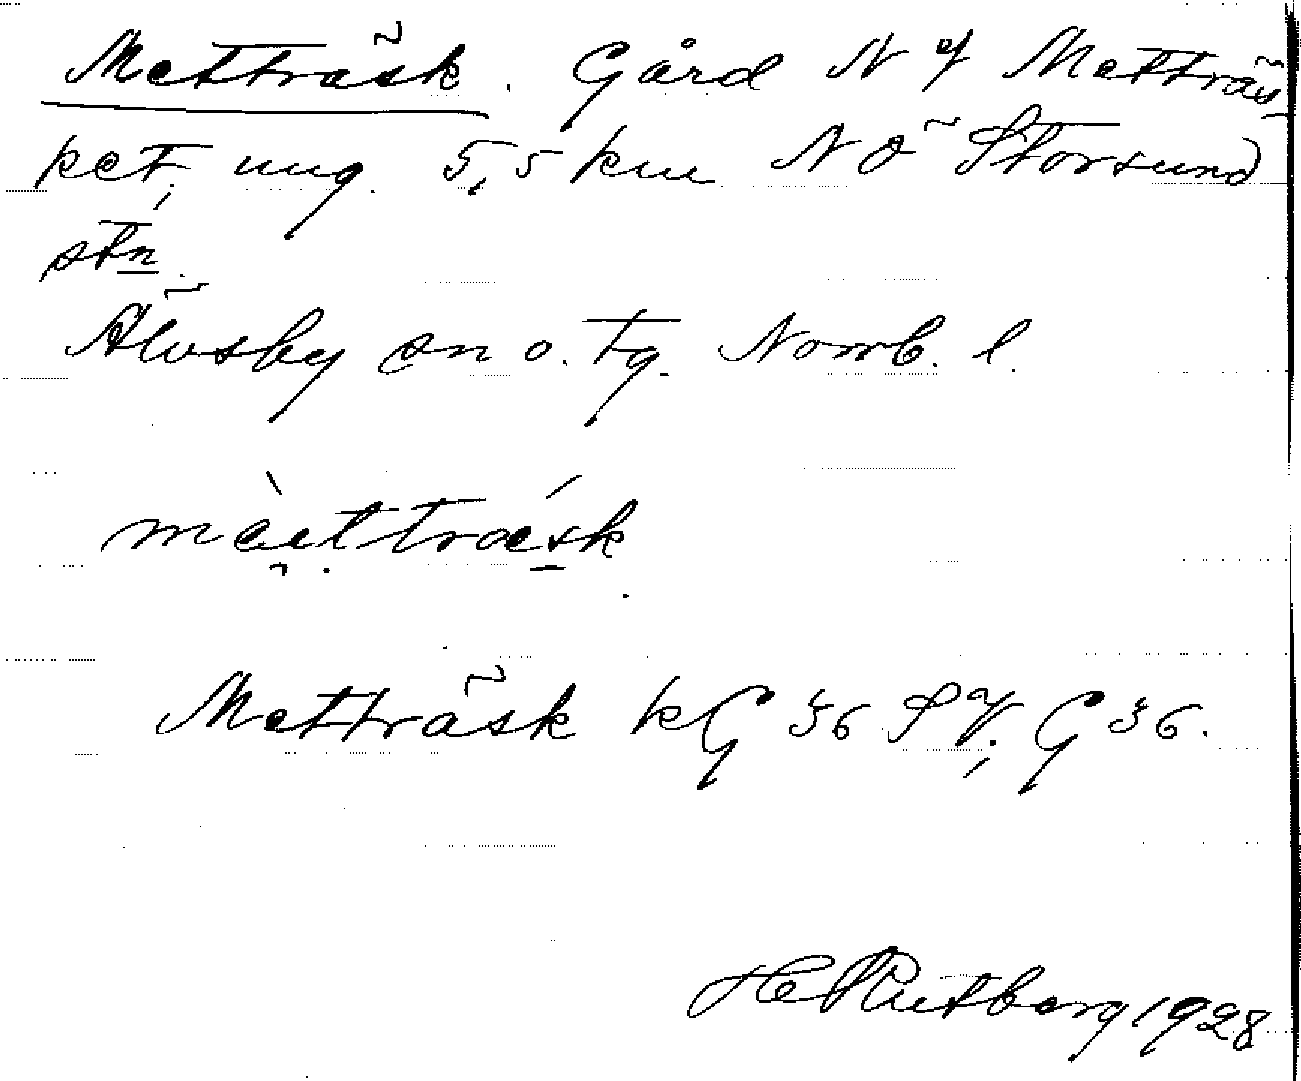 Metträsk. Gård N of Metträs
ket, ung. 5,5 km NÖ Storsund
stn.
Älvsby sn o. tg. Norrb. l.
mæ̀ttrǽsk
Metträsk kG 36 SV, G 36.
H Rutberg 1928